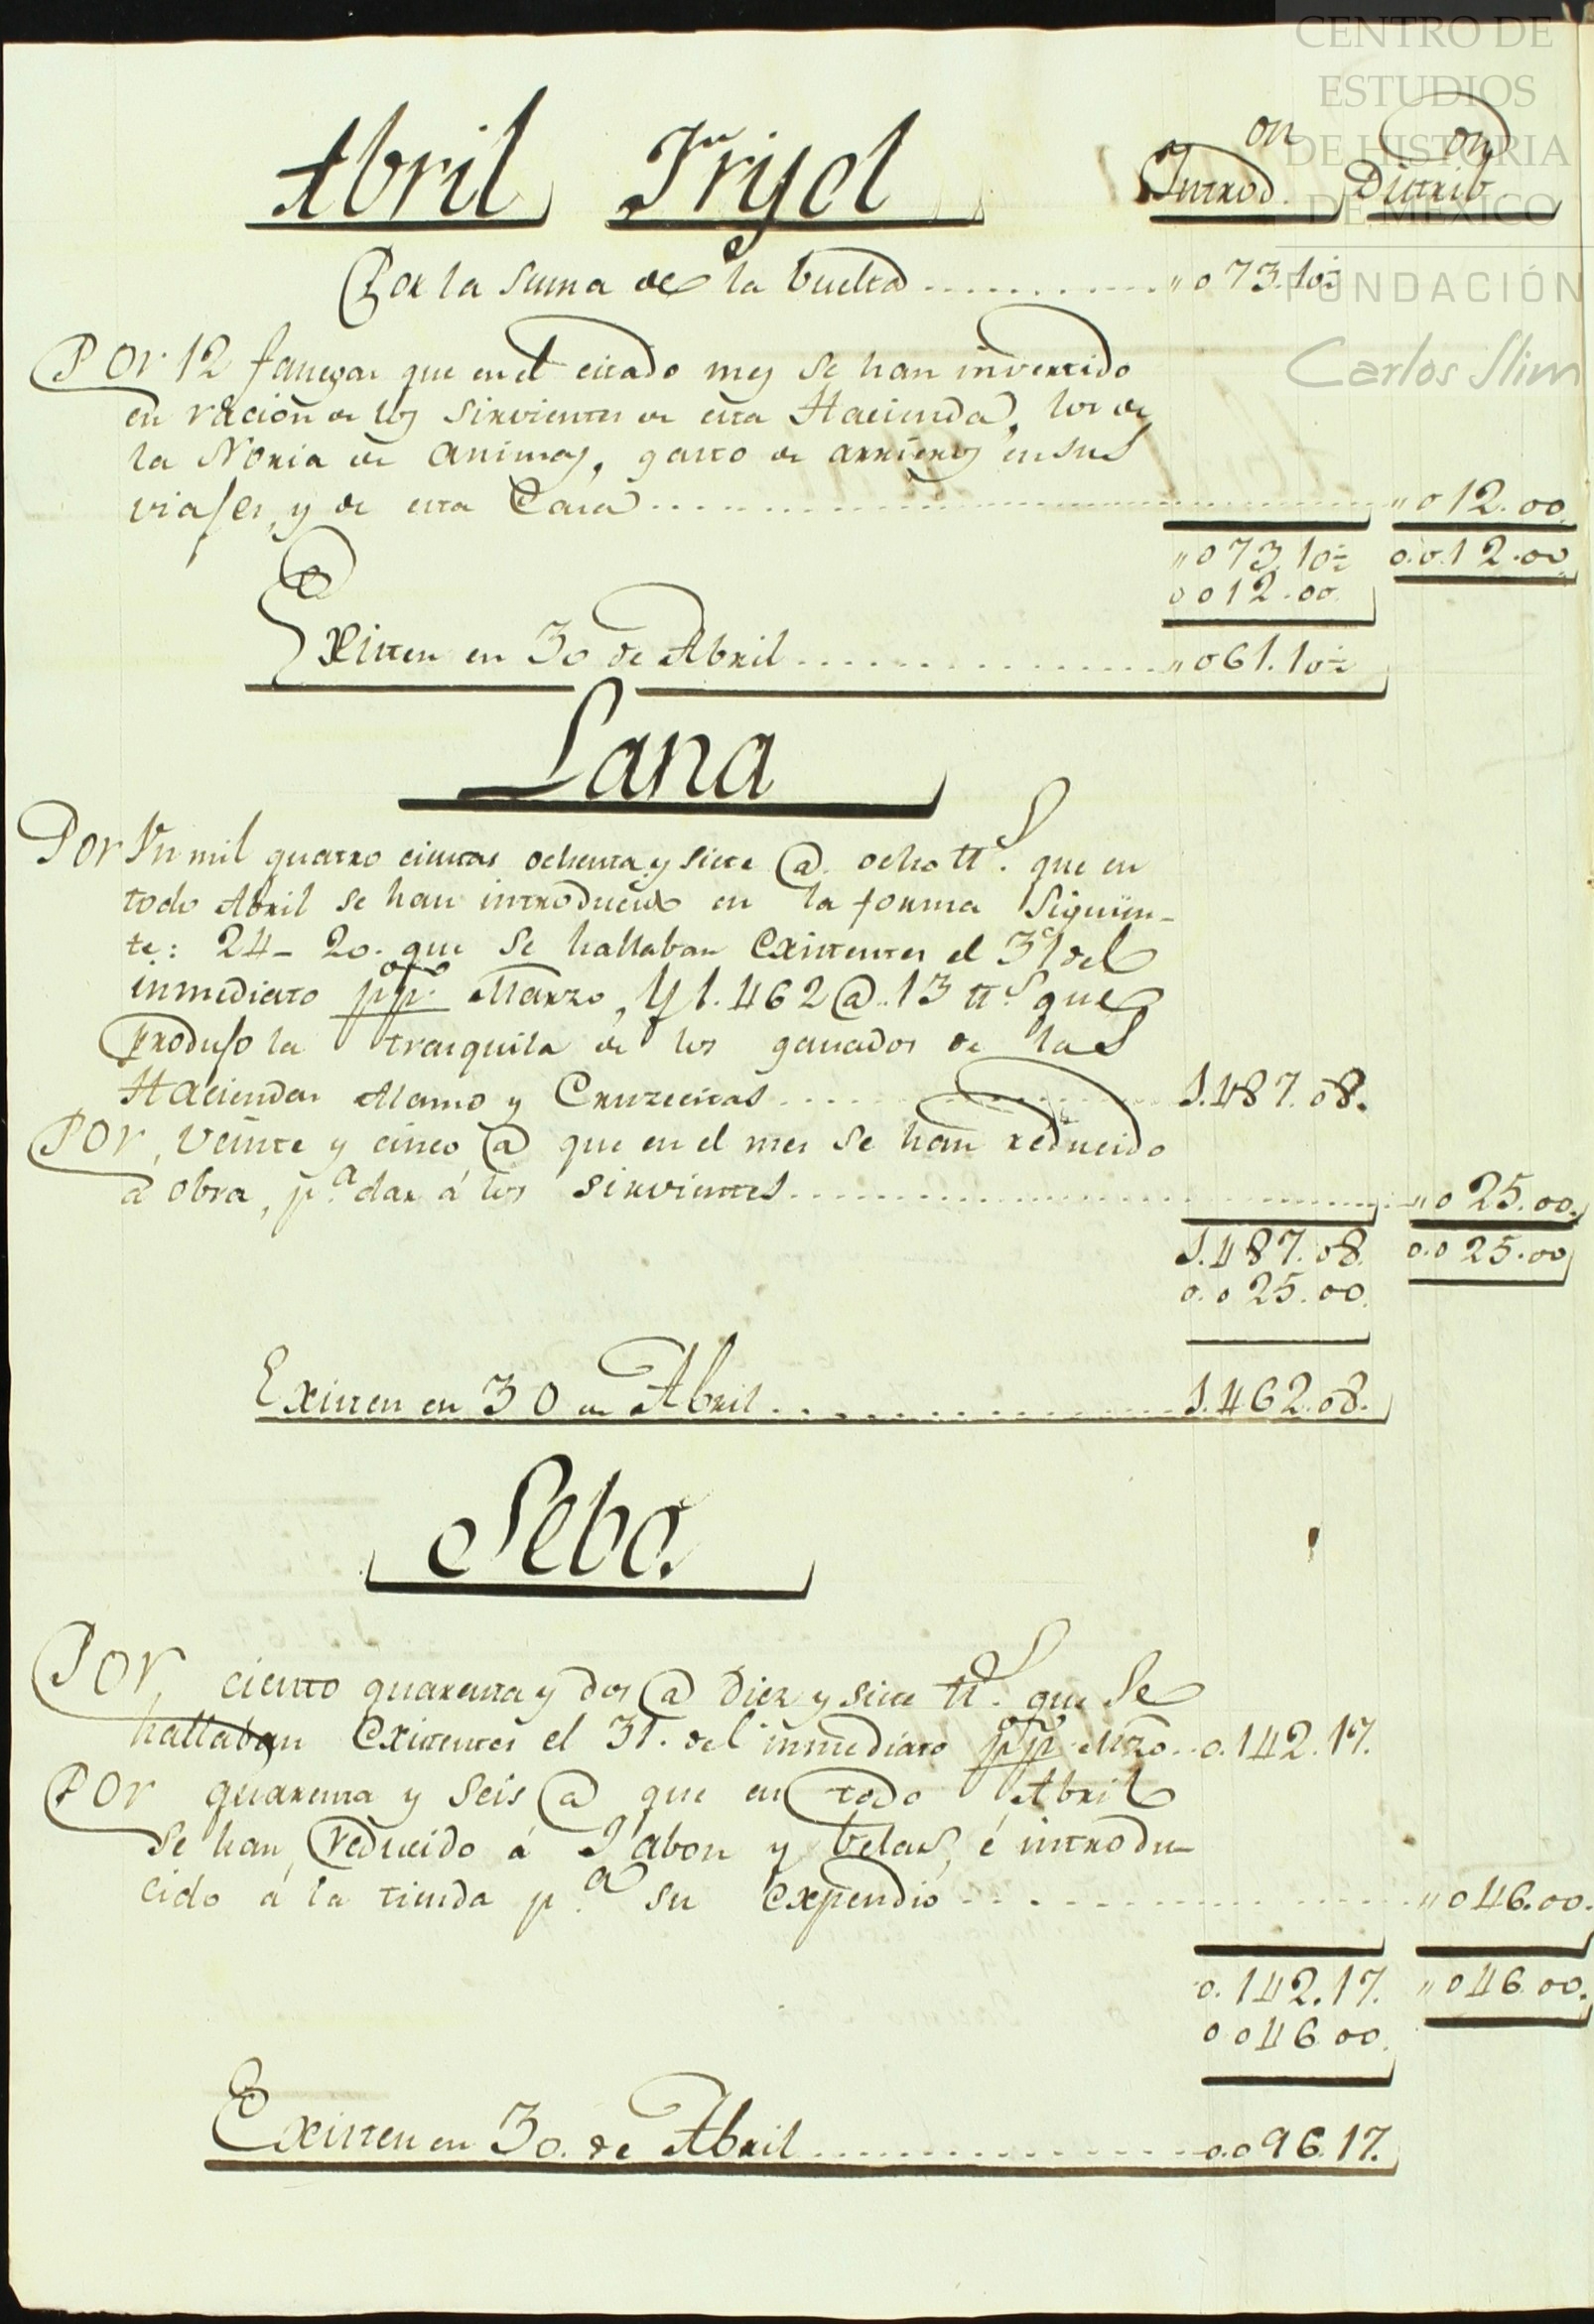 CENTRO DE
ESTUDIOS
DE HISTORIA
DE MÉXICO
FUNDACIÓN
Carlos Slim
Abril Frijol Introd.on Distrib.on
Por la suma de la buelta ........... " 073.10½
Por 12 fanegas que en el citado mes se han invertido
en racion de los sirvientes de esta Hacienda, los de
la Noria de Animas, gasto de arrieros en sus
viajes, y de esta Casa ........... " 012.00.
" 073.10½ 0.012.00
0012.00.
Existen en 30 de Abril ........... " 061.10½
Lana
Por Un mil quatro cientas ochenta y siete @. ocho tt.s que en
todo Abril se han introducido en la forma siguien-
te: 24 - 20. que se hallaban existentes el 31 del
inmediato pp.o Marzo, y 1.462 @. 13 tt.s que
produjo la trasquila de los ganados de las
Haciendas Alamo y Cruzecitas ........... 1.487.08.
Por, veinte y cinco @ que en el mes se han reducido
á obra, p.a dar á los sirvientes ........... " 025.00.
1.487.08. 0.025.00
0.025.00.
Existen en 30 de Abril ........... 1.462.08.
Sebo.
Por, ciento quarenta y dos @ diez y siete tt.s que se
hallaban existentes el 31. del inmediato pp.o Mzo .. 0.142.17.
Por quarenta y seis @ que en todo Abril
se han reducido á Jabon y belas, é introdu-
cido á la tienda p.a su expendio ........... " 046.00.
0.142.17. " 046.00.
0046.00.
Existen en 30. de Abril ........... 0.096.17.